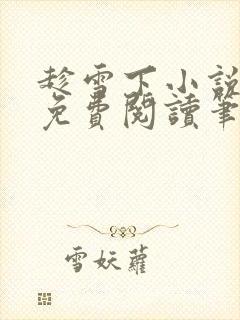 趁雪下小說
免費閱讀筆
雪妖蘿